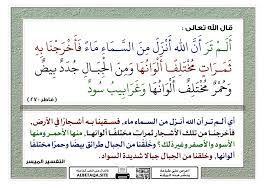 قال الله تعالى :
أَلَمْ تَرَ أَنَّ اللَّهَ أَنزَلَ مِنَ السَّمَاءِ مَاءً فَأَخْرَجْنَا بِهِ
ثَمَرَاتٍ مُّخْتَلِفًا أَلْوَانُهَا وَمِنَ الْجِبَالِ جُدَدٌ بِيضٌ
وَحُمْرٌ مُّخْتَلِفٌ أَلْوَانُهَا وَغَرَابِيبُ سُودٌ
( فاطر : ٢٧ )
أي ألم تر أن الله أنزل من السماء ماء، فسقينا به أشجارًا في الأرض،
فأخرجنا من تلك الأشجار ثمرات مختلفًا ألوانها، منها الأحمر ومنها
الأسود والأصفر وغير ذلك؟ وخلقنا من الجبال طرائق بيضًا وحمرًا مختلفًا
ألوانها، وخلقنا من الجبال جبالا شديدة السواد.
التفسير الميسر
ALBETAQA.SITE